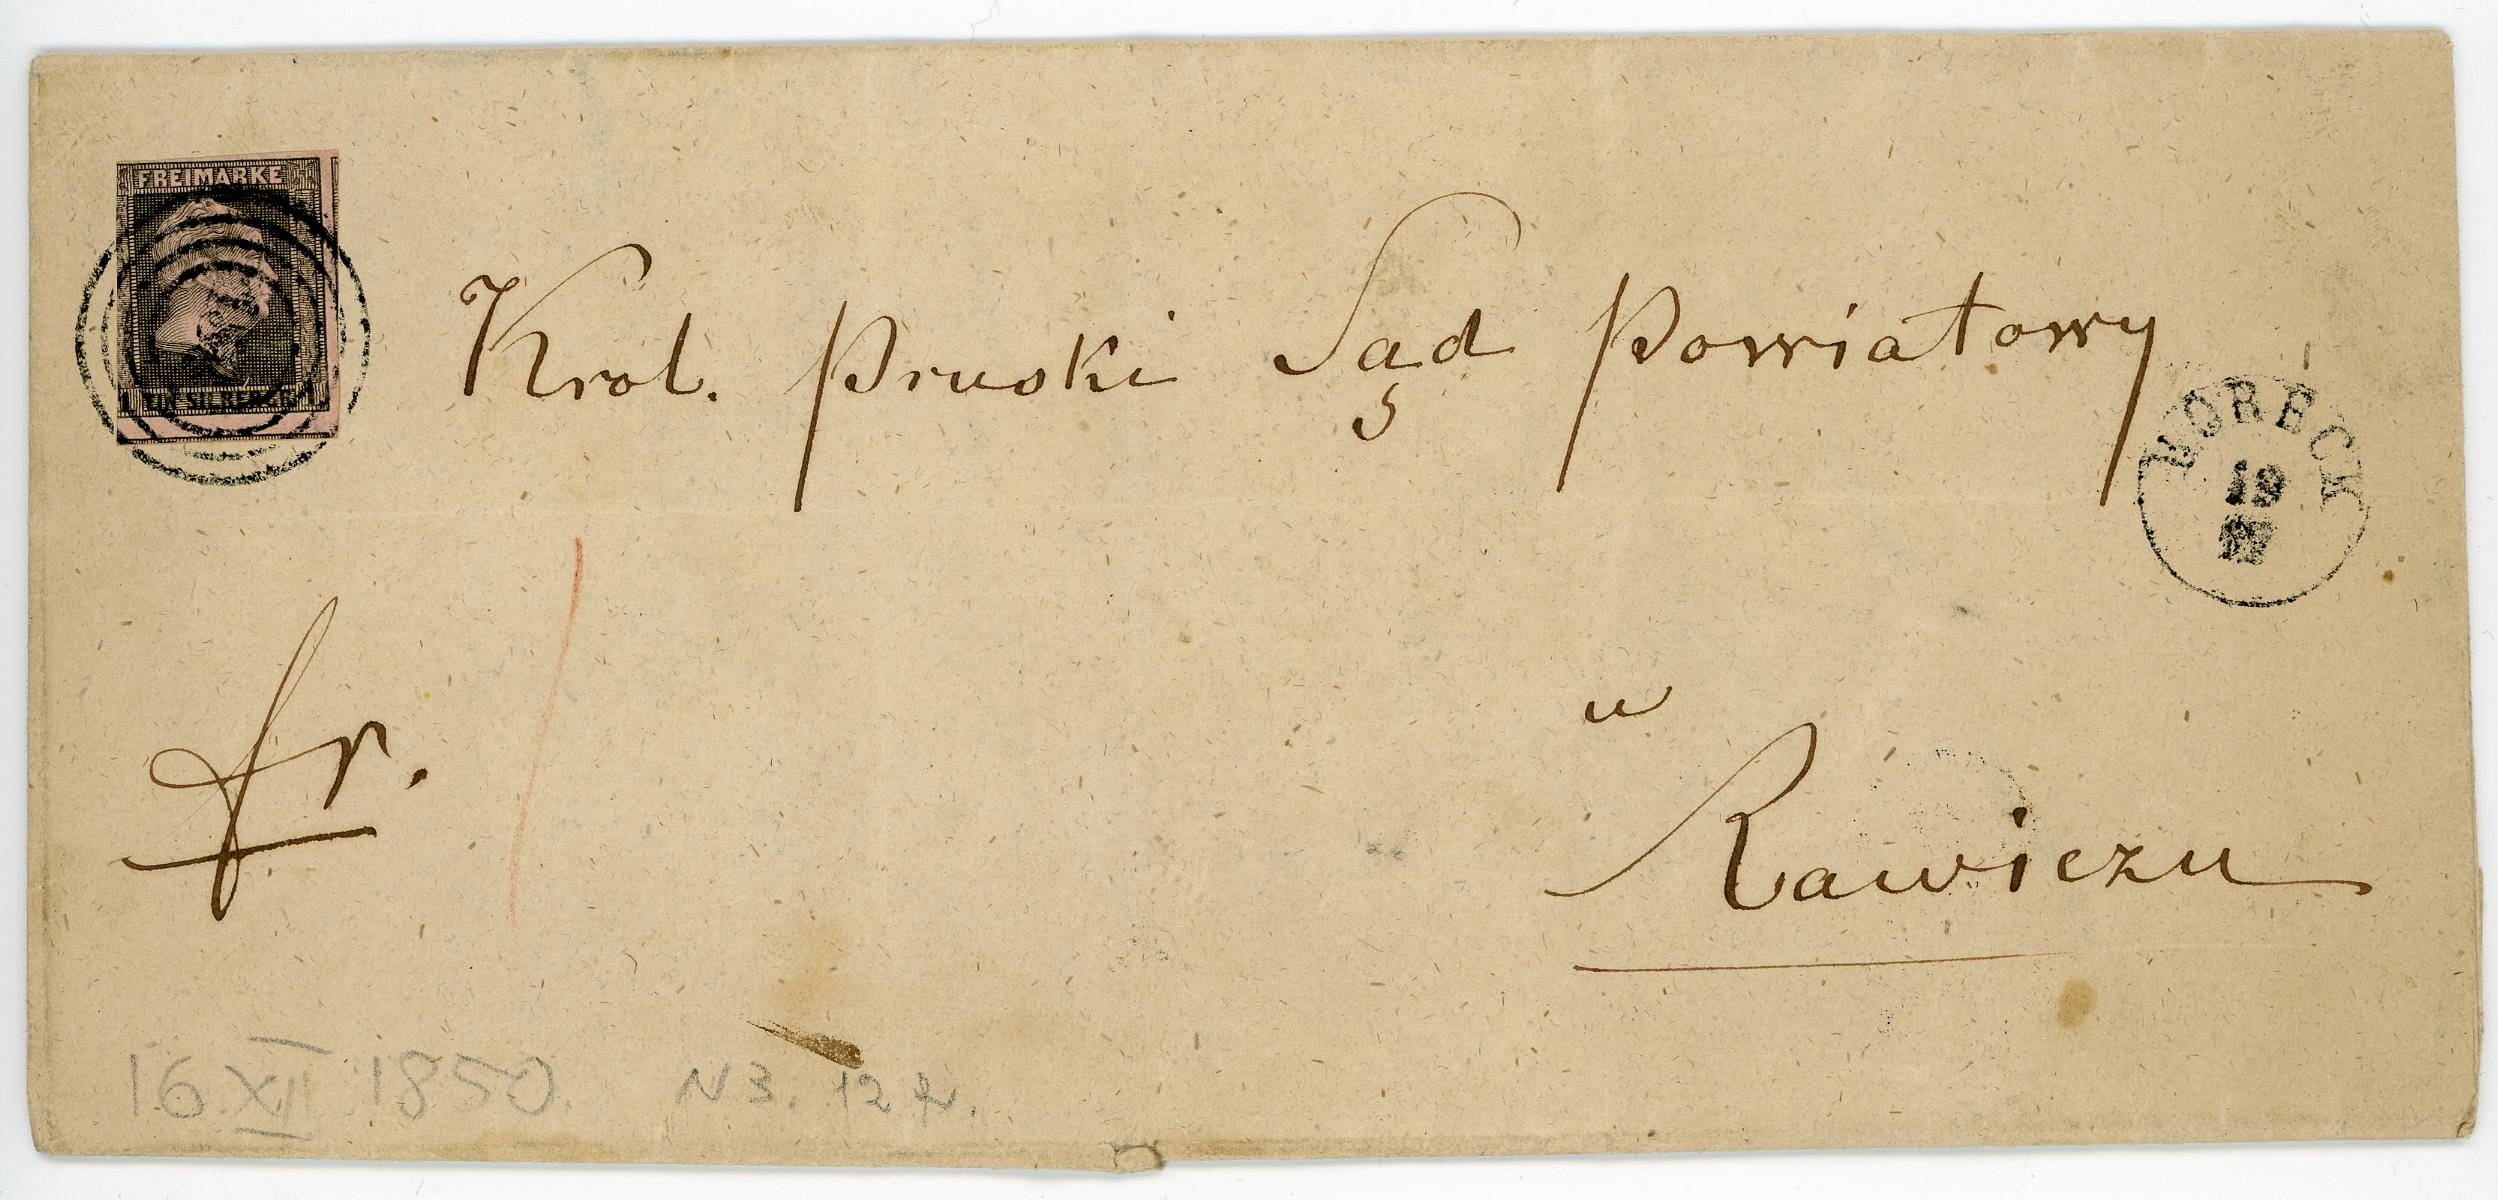 FREIMARKE
EIN SILBERGR.
Krol. Pruski Sąd Powiatowy
BORECK
19
fr.
w
Rawiczu
16 XII 1850 N 3. 12